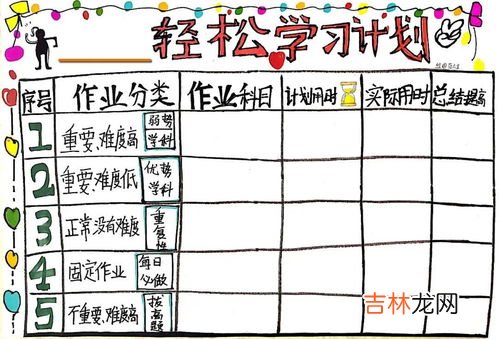 轻松学习计划
序号 作业分类 作业科目 计划用时 实际用时 总结提高
1 重要、难度高 弱势学科
2 重要、难度低 优势学科
3 正常没有难度 重复性
4 固定作业 每日必做
5 不重要、难度高 拔高题
吉林龙网